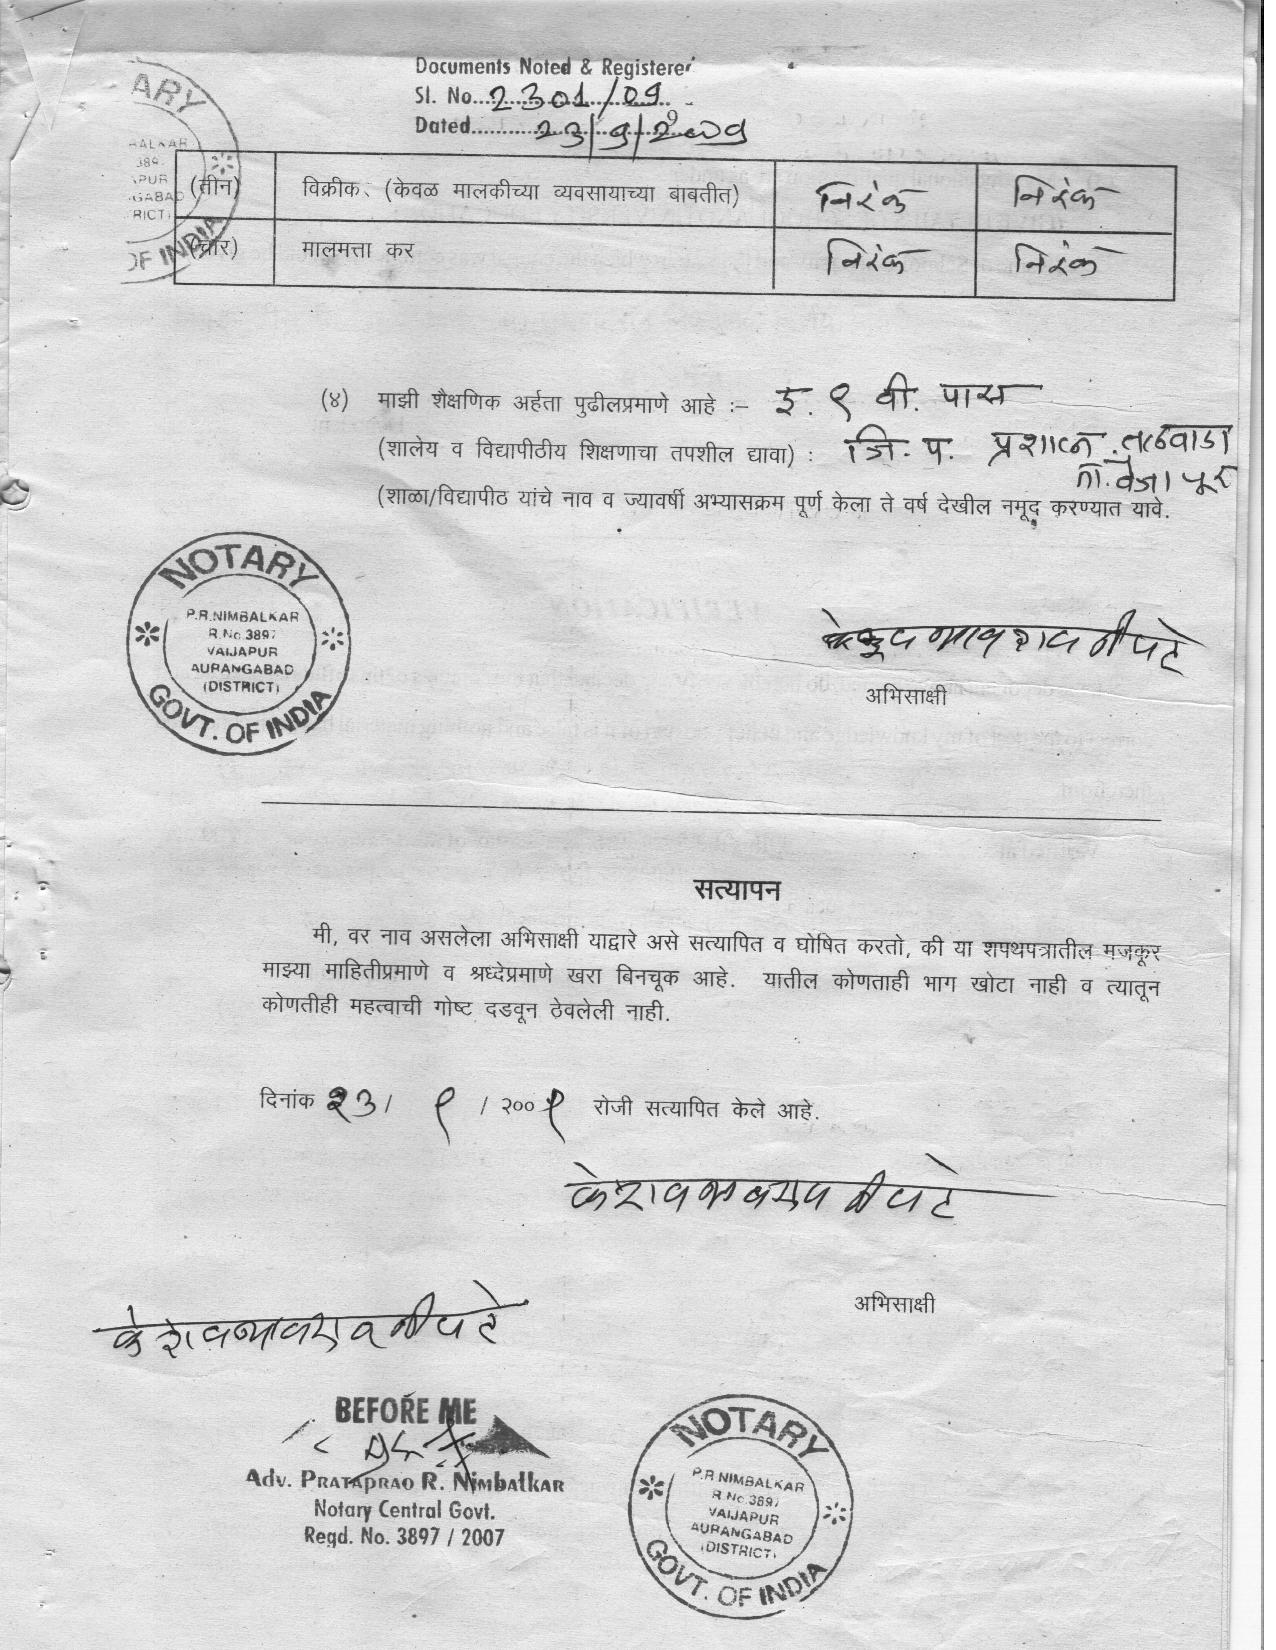 Documents Noted & Registered
Sl. No. 2301/09
Dated 23/9/2009
NOTARY
(तीन) विक्रीक: (केवळ मालकीच्या व्यवसायाच्या बाबतीत) निरंक निरंक
(चार) मालमत्ता कर निरंक निरंक
OF INDIA
(४) माझी शैक्षणिक अर्हता पुढीलप्रमाणे आहे :– इ. ९ वी. पास
(शालेय व विद्यापीठीय शिक्षणाचा तपशील द्यावा) : जि. प. प्रशाला. तलवाडा
ता. वैजापूर
(शाळा/विद्यापीठ यांचे नाव व ज्यावर्षी अभ्यासक्रम पूर्ण केला ते वर्ष देखील नमूद करण्यात यावे.
NOTARY
P.R.NIMBALKAR
R.No.3897
VAIJAPUR
AURANGABAD
(DISTRICT)
GOVT. OF INDIA
अभिसाक्षी
सत्यापन
मी, वर नाव असलेला अभिसाक्षी याद्वारे असे सत्यापित व घोषित करतो, की या शपथपत्रातील मजकूर
माझ्या माहितीप्रमाणे व श्रध्देप्रमाणे खरा बिनचूक आहे. यातील कोणताही भाग खोटा नाही व त्यातून
कोणतीही महत्वाची गोष्ट दडवून ठेवलेली नाही.
दिनांक २३/ ९ /२००९ रोजी सत्यापित केले आहे.
केशव भावराव नीपटे
अभिसाक्षी
BEFORE ME
Adv. PRATAPRAO R. Nimbalkar
Notary Central Govt.
Regd. No. 3897 / 2007
NOTARY
P.R.NIMBALKAR
R.No.3897
VAIJAPUR
AURANGABAD
(DISTRICT)
GOVT. OF INDIA